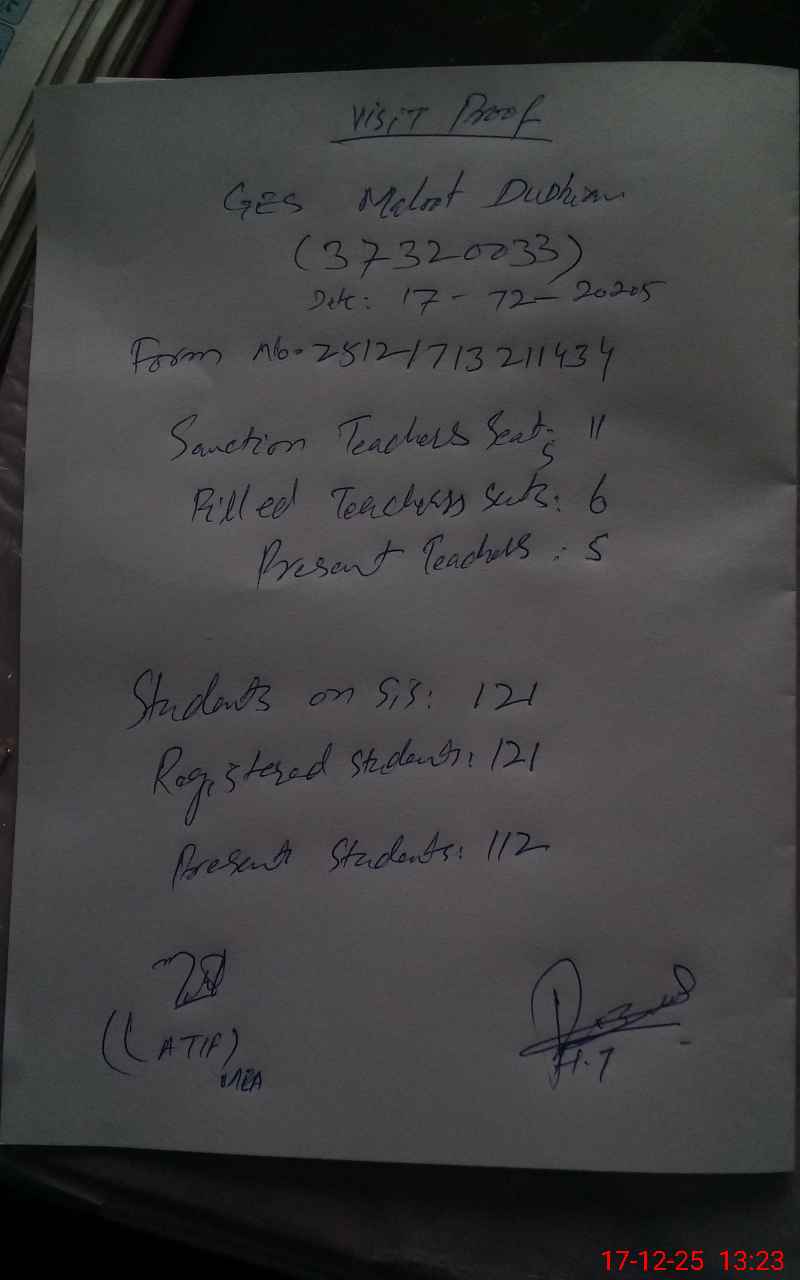 Visit Proof
GES Malot Dushian
(37320033)
Date: 17-12-20205
Form No. 251217713211434
Sanction Teachers Seats 11
Filled Teacherss seats: 6
Present Teachers: 5
Students on Sis: 121
Registered students: 121
Present Students: 112
(LATIF)
MEA
H.T
17-12-25 13:23